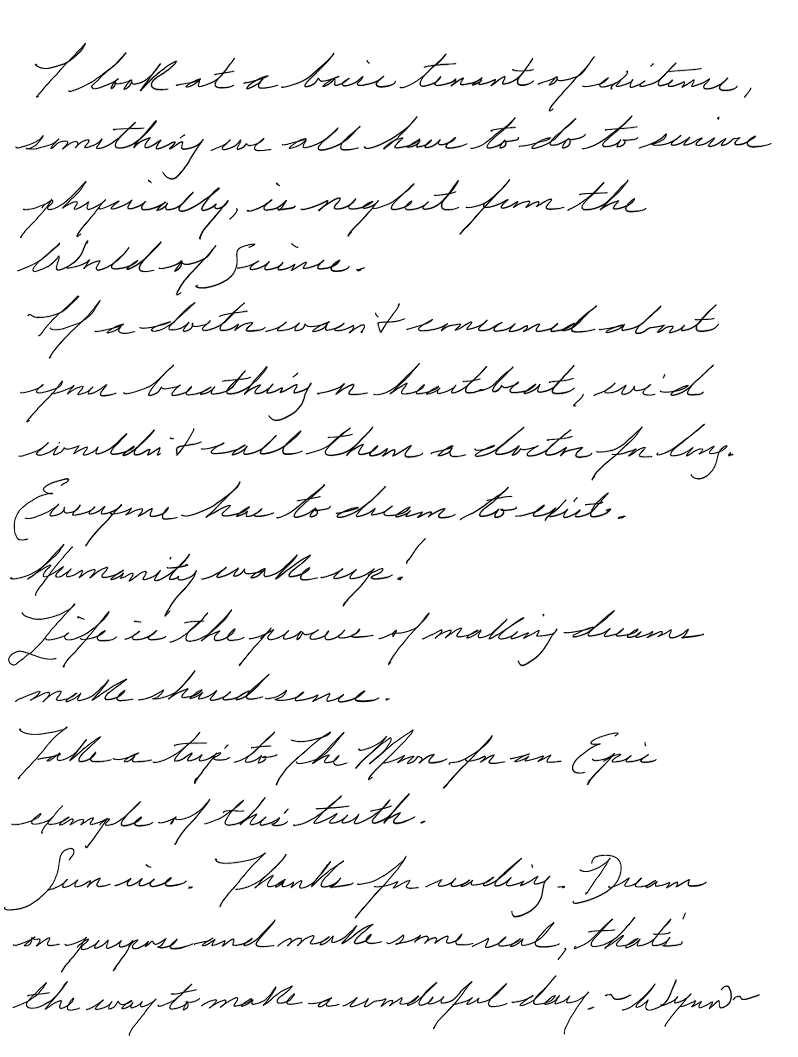 I look at a basic tenant of existence,
something we all have to do to survive
physically, is neglect from the
World of Science.
If a doctor wasn't concerned about
your breathing or heartbeat, we'd
wouldn't call them a doctor for long.
Everyone has to dream to exist.
Humanity wake up!
Life is the process of making dreams
make shared sense.
Take a trip to The Moon for an Epic
example of this truth.
Sun rise. Thanks for reading. Dream
on purpose and make some real, that's
the way to make a wonderful day. ~Wynn~